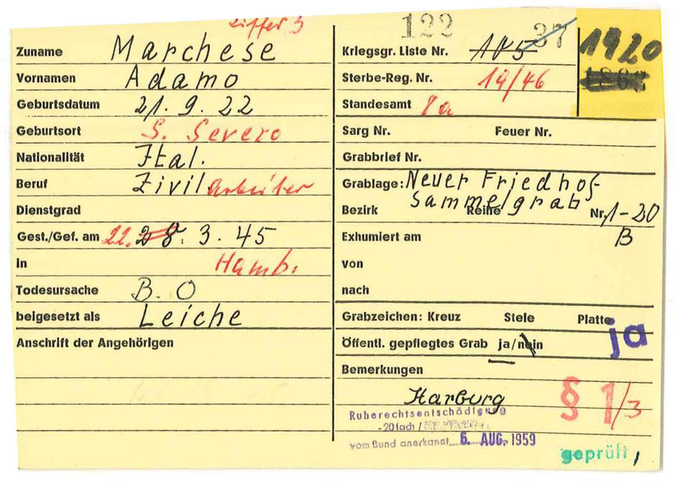 Ziffer 3
Zuname Marchese
Vornamen Adamo
Geburtsdatum 21. 9. 22
Geburtsort S. Severo
Nationalität Ital.
Beruf Zivilarbeiter
Dienstgrad
Gest./Gef. am 22. 28. 3. 45
in Hamb.
Todesursache B. O
beigesetzt als Leiche
Anschrift der Angehörigen
122 37
Kriegsgr. Liste Nr. 105
1920
Sterbe-Reg. Nr. 19/46
Standesamt 8a
Sarg Nr. Feuer Nr.
Grabbrief Nr.
Grablage: Neuer Friedhof
Sammelgrab
Bezirk Reihe Nr. 1-20
Exhumiert am B
von
nach
Grabzeichen: Kreuz Stele Platte
Öffentl. gepflegtes Grab ja/nein ja
Bemerkungen
Harburg § 1/3
Ruherechtsentschädigung
-20fach/
vom Bund anerkannt 6. AUG. 1959
geprüft